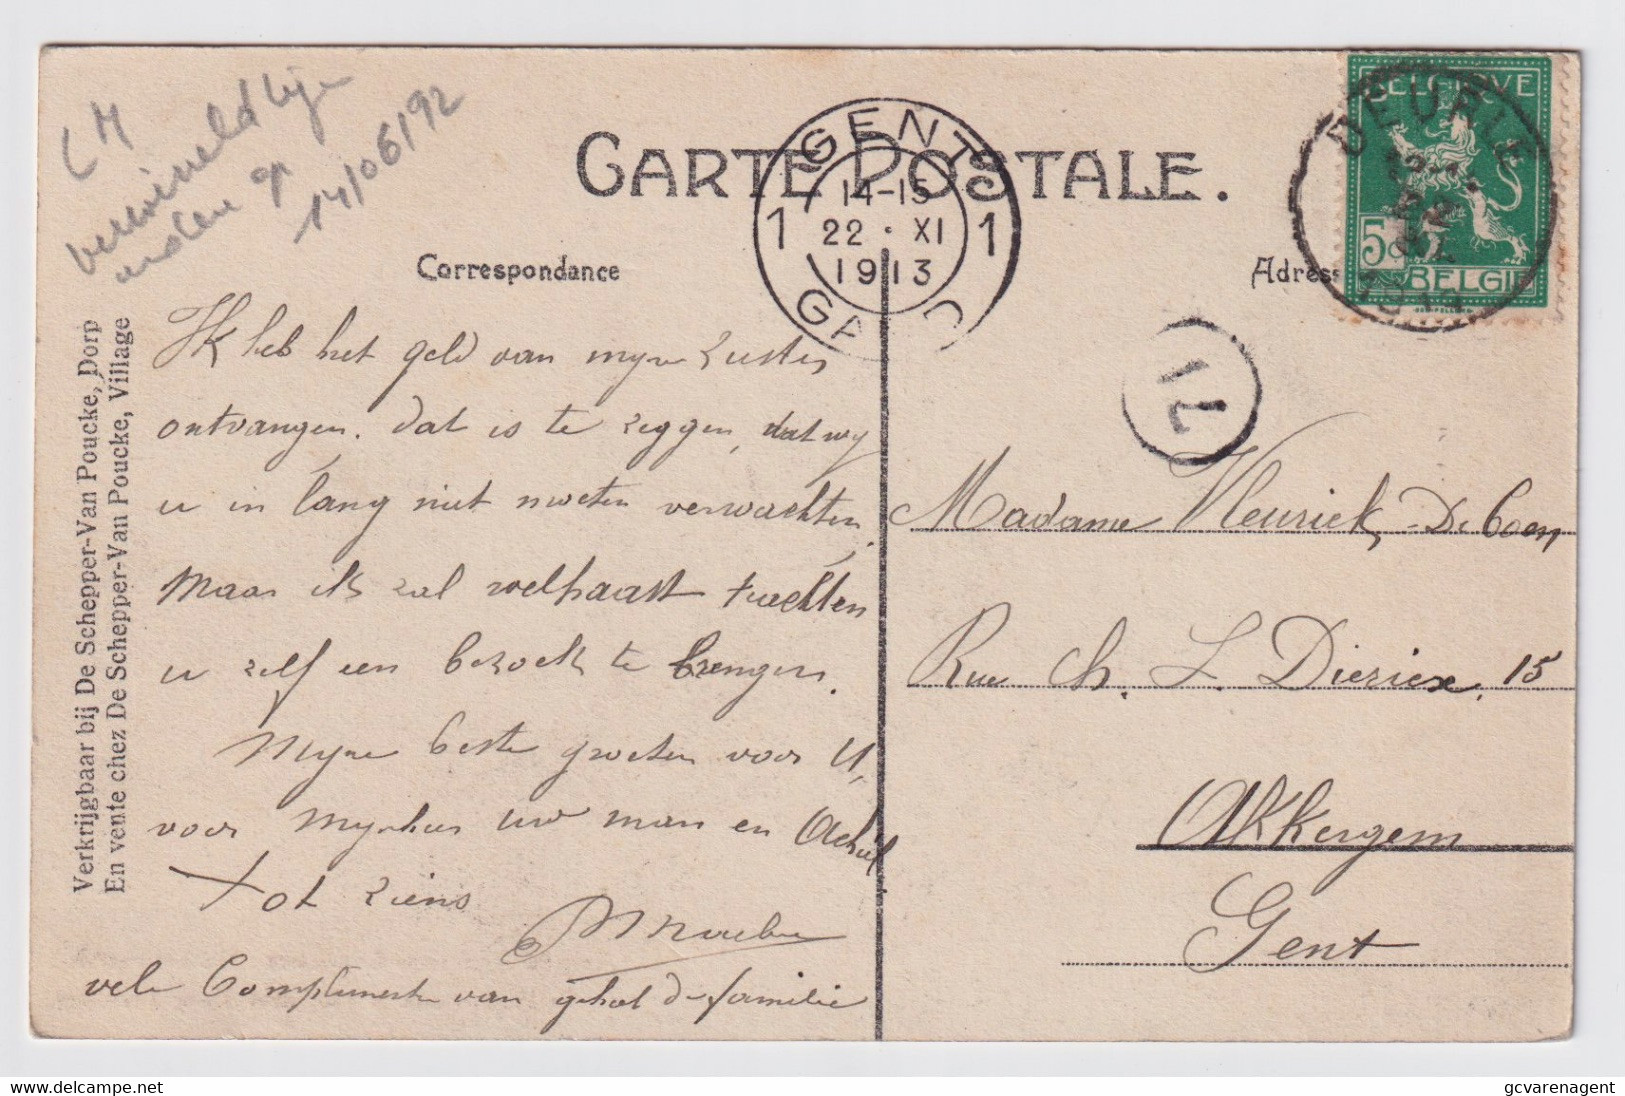 LM
op
14/06/92
CARTE POSTALE.
Correspondance
Adress
GENT
1 14-15 1
22 · XI
1913
GA D
BELGIQUE
5c
BELGIË
DEURLE
22
1913
Verkrijgbaar bij De Schepper-Van Poucke, Dorp
En vente chez De Schepper-Van Poucke, Village
Ik heb het geld van myne zuster
ontvangen. dat is te zeggen, dat wy
u in lang niet moeten verwachten.
Maar ik zal welhaast trachten
u zelf een bezoek te brengen.
Myne beste groeten voor U,
voor uw man en Achiel
Tot ziens
vele Complimenten van geheel de familie
Madame De Coen
Rue Ch. L. Diericx, 15
Akkergem
Gent
gcvarenagent